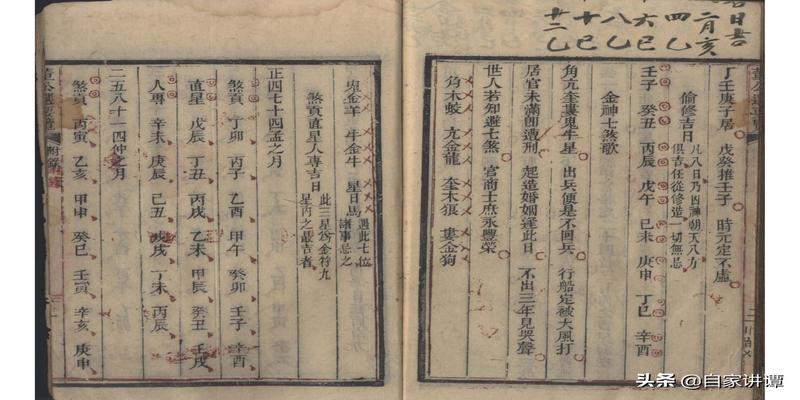 日書
二月亥
四乙
六巳
八乙
十巳
廿二乙
丁壬庚子居 戊癸推壬子 時元定不虛
偷修吉日 凡八日乃凶神朝天八方
俱吉任從修造一切無忌
壬子 癸丑 丙辰 戊午 己未 庚申 丁巳 辛酉
金神七煞歌
角亢奎婁鬼牛星 出兵便是不回兵 行船定被大風打
居官未滿即遭刑 起造婚姻逢此日 不出三年見哭聲
世人若知避七煞 官商士庶永興榮
角木蛟 亢金龍 奎木狼 婁金狗
鬼金羊 牛金牛 星日馬 遇此七位
諸事忌之
煞貢直星人專吉日 此三星爲金符九
星內之最吉者
正四七十四孟之月
煞貢 丁卯 丙子 乙酉 甲午 癸卯 壬子 辛酉
直星 戊辰 丁丑 丙戌 乙未 甲辰 癸丑 壬戌
人專 辛未 庚辰 己丑 戊戌 丁未 丙辰
二五八十一四仲之月
煞貢 丙寅 乙亥 甲申 癸巳 壬寅 辛亥 庚申
董公選要覽 附錄
头条 @自家讲谭